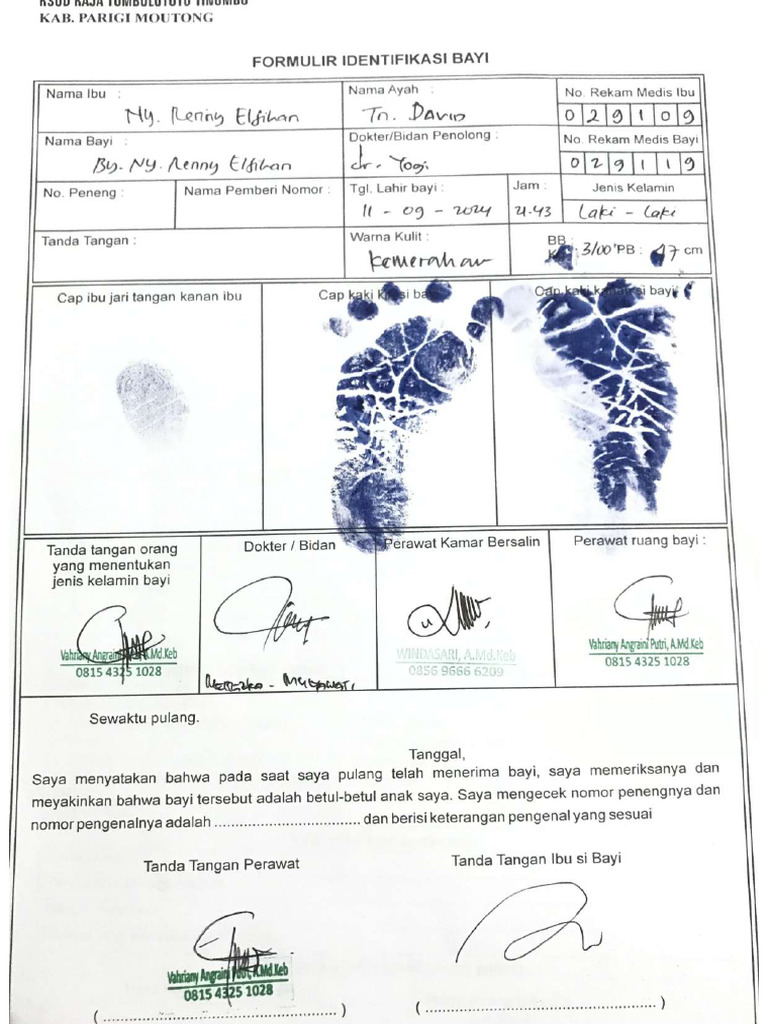 RSUD RAJA TOMBOLOTUTU TINOMBO
KAB. PARIGI MOUTONG
FORMULIR IDENTIFIKASI BAYI
Nama Ibu :
Ny. Renny Elfihan
Nama Ayah :
Tn. David
No. Rekam Medis Ibu
029109
Nama Bayi :
By. Ny. Renny Elfihan
Dokter/Bidan Penolong :
dr. Yogi
No. Rekam Medis Bayi
029119
No. Peneng :
Nama Pemberi Nomor :
Tgl. Lahir bayi :
11 - 09 - 2024
Jam :
21.43
Jenis Kelamin
Laki - Laki
Tanda Tangan :
Warna Kulit :
Kemerahan
BB : 3100 PB : 47 cm
Cap ibu jari tangan kanan ibu
Cap kaki kiri si bayi
Cap kaki kanan si bayi
Tanda tangan orang
yang menentukan
jenis kelamin bayi
Vahriany Angraini Putri, A.Md.Keb
0815 4325 1028
Dokter / Bidan
Perawat Kamar Bersalin
WINDASARI, A.Md.Keb
0856 9666 6209
Perawat ruang bayi :
Vahriany Angraini Putri, A.Md.Keb
0815 4325 1028
Sewaktu pulang.
Tanggal,
Saya menyatakan bahwa pada saat saya pulang telah menerima bayi, saya memeriksanya dan
meyakinkan bahwa bayi tersebut adalah betul-betul anak saya. Saya mengecek nomor penengnya dan
nomor pengenalnya adalah .................................... dan berisi keterangan pengenal yang sesuai
Tanda Tangan Perawat
Tanda Tangan Ibu si Bayi
Vahriany Angraini Putri, A.Md.Keb
0815 4325 1028
(............................................................)
(............................................................)